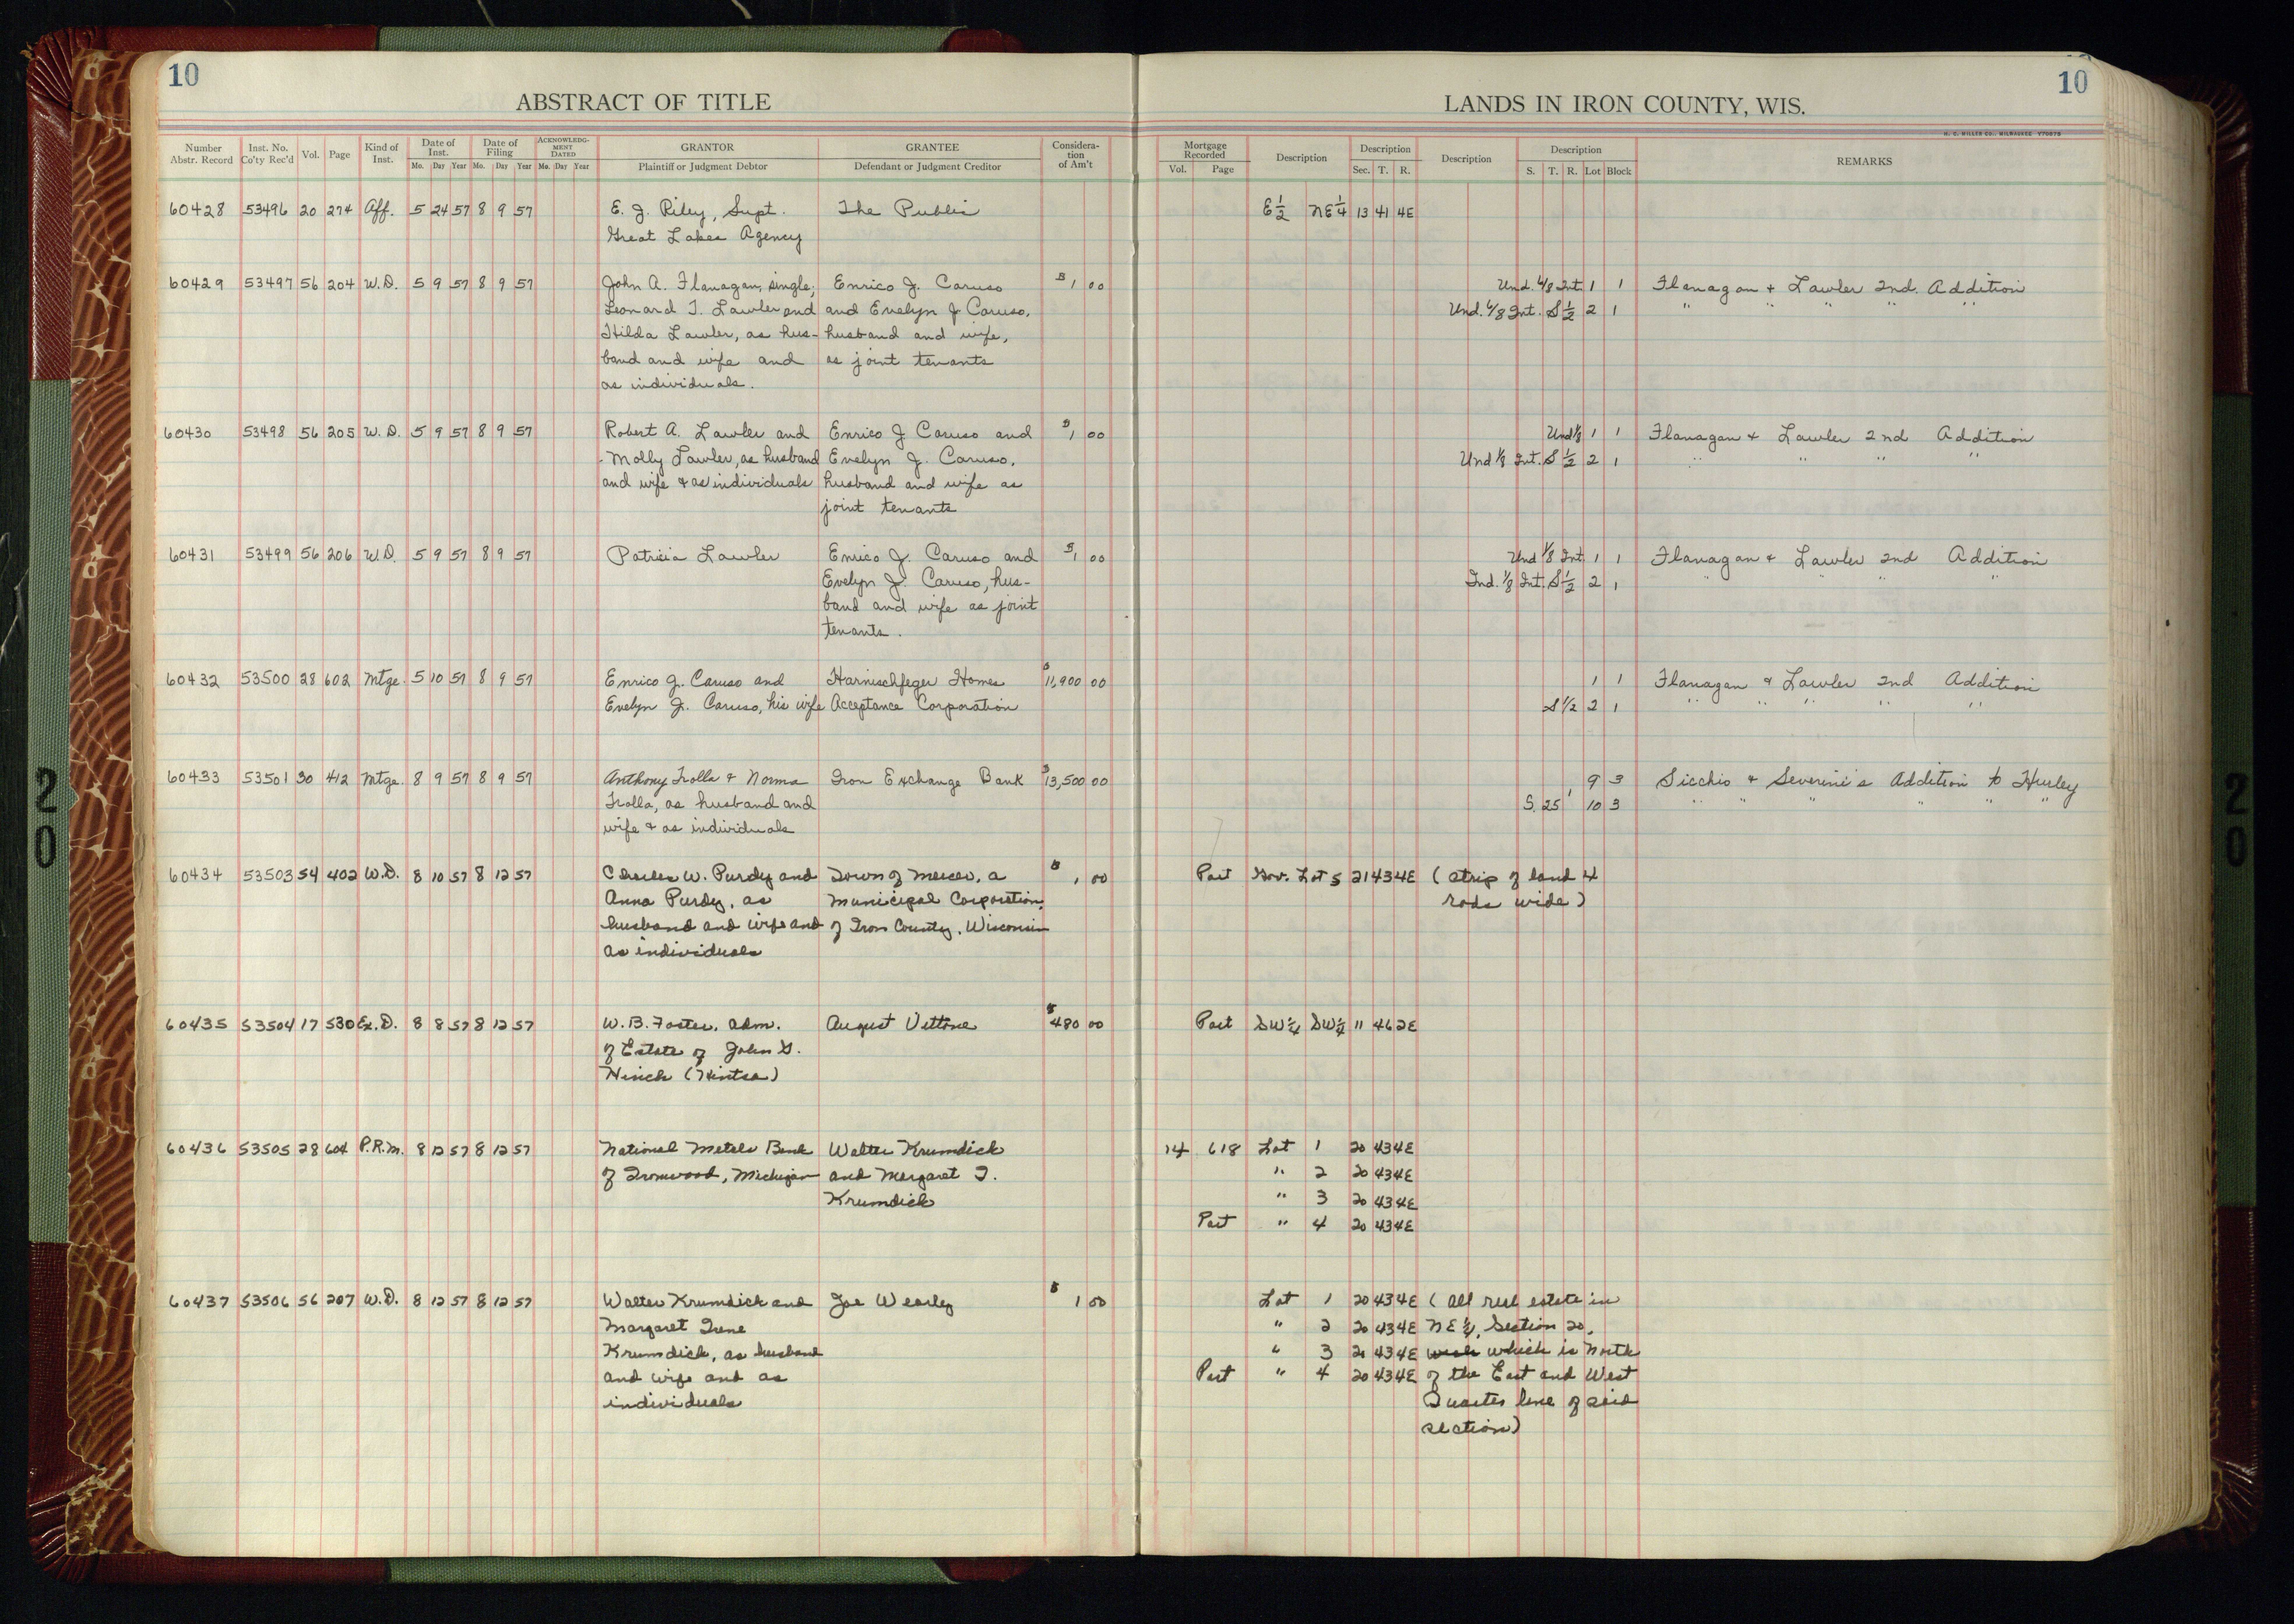 10
ABSTRACT OF TITLE
LANDS IN IRON COUNTY, WIS.
10
H. C. MILLER CO., MILWAUKEE
Number Abstr. Record Inst. No. Co'ty Rec'd Vol. Page Kind of Inst. Date of Inst. Mo. Day Year Date of Filing Mo. Day Year ACKNOWLEDGMENT DATED Mo. Day Year GRANTOR Plaintiff or Judgment Debtor GRANTEE Defendant or Judgment Creditor Consideration of Am't Mortgage Recorded Vol. Page Description Description Sec. T. R. Description Description S. T. R. Lot Block REMARKS
60428 53496 20 274 Aff. 5 24 57 8 9 57 E. J. Riley, Supt. The Public E 1/2 NE 1/4 13 41 4E
Great Lakes Agency
60429 53497 56 204 W.D. 5 9 57 8 9 57 John A. Flanagan, single; Enrico J. Caruso $1 00 Und. 6/8 Int. 1 1 Flanagan & Lawler 2nd. Addition
Leonard T. Lawler and and Evelyn J. Caruso, Und. 6/8 Int. S 1/2 2 1 " " " "
Hilda Lawler, as hus- husband and wife,
band and wife and as joint tenants
as individuals.
60430 53498 56 205 W.D. 5 9 57 8 9 57 Robert A. Lawler and Enrico J Caruso and $1 00 Und 1/8 1 1 Flanagan & Lawler 2nd Addition
Molly Lawler, as husband Evelyn J. Caruso, Und 1/8 Int. S 1/2 2 1 " " " "
and wife & as individuals husband and wife as
joint tenants
60431 53499 56 206 W.D. 5 9 57 8 9 57 Patricia Lawler Enrico J. Caruso and $1 00 Und 1/8 Int. 1 1 Flanagan & Lawler 2nd Addition
Evelyn J. Caruso, hus- Ind. 1/8 Int. S 1/2 2 1 " " " "
band and wife as joint
tenants.
60432 53500 28 602 Mtge. 5 10 57 8 9 57 Enrico J. Caruso and Harnischfeger Homes $11,900 00 1 1 Flanagan & Lawler 2nd Addition
Evelyn J. Caruso, his wife Acceptance Corporation S 1/2 2 1 " " " " "
60433 53501 30 412 Mtge. 8 9 57 8 9 57 Anthony Trolla & Norma Iron Exchange Bank $13,500 00 9 3 Sicchio & Severini's Addition to Hurley
Trolla, as husband and S. 25' 10 3 " " " " " "
wife & as individuals
60434 53503 54 402 W.D. 8 10 57 8 12 57 Charles W. Purdy and Town of Mercer, a $1 00 Part Gov. Lot 5 21 43 4E (strip of land 4
Anna Purdy, as Municipal Corporation, rods wide)
husband and wife and of Iron County, Wisconsin
as individuals
60435 53504 17 530 Ex.D. 8 8 57 8 12 57 W. B. Foster, Adm. August Vittone $480 00 Part SW 1/4 SW 1/4 11 46 2E
of Estate of John G.
Hinch (Hintsa)
60436 53505 28 604 P.R.M. 8 12 57 8 12 57 National Metals Bank Walter Krumdick 14 618 Lot 1 20 43 4E
of Ironwood, Michigan and Margaret I. " 2 20 43 4E
Krumdick " 3 20 43 4E
Part " 4 20 43 4E
60437 53506 56 207 W.D. 8 12 57 8 12 57 Walter Krumdick and Joe Wearley $1 00 Lot 1 20 43 4E (All real estate in
Margaret Irene " 2 20 43 4E NE 1/4, Section 20,
Krumdick, as husband " 3 20 43 4E which is North
and wife and as Part " 4 20 43 4E of the East and West
individuals Quarter line of said
section)
20
20